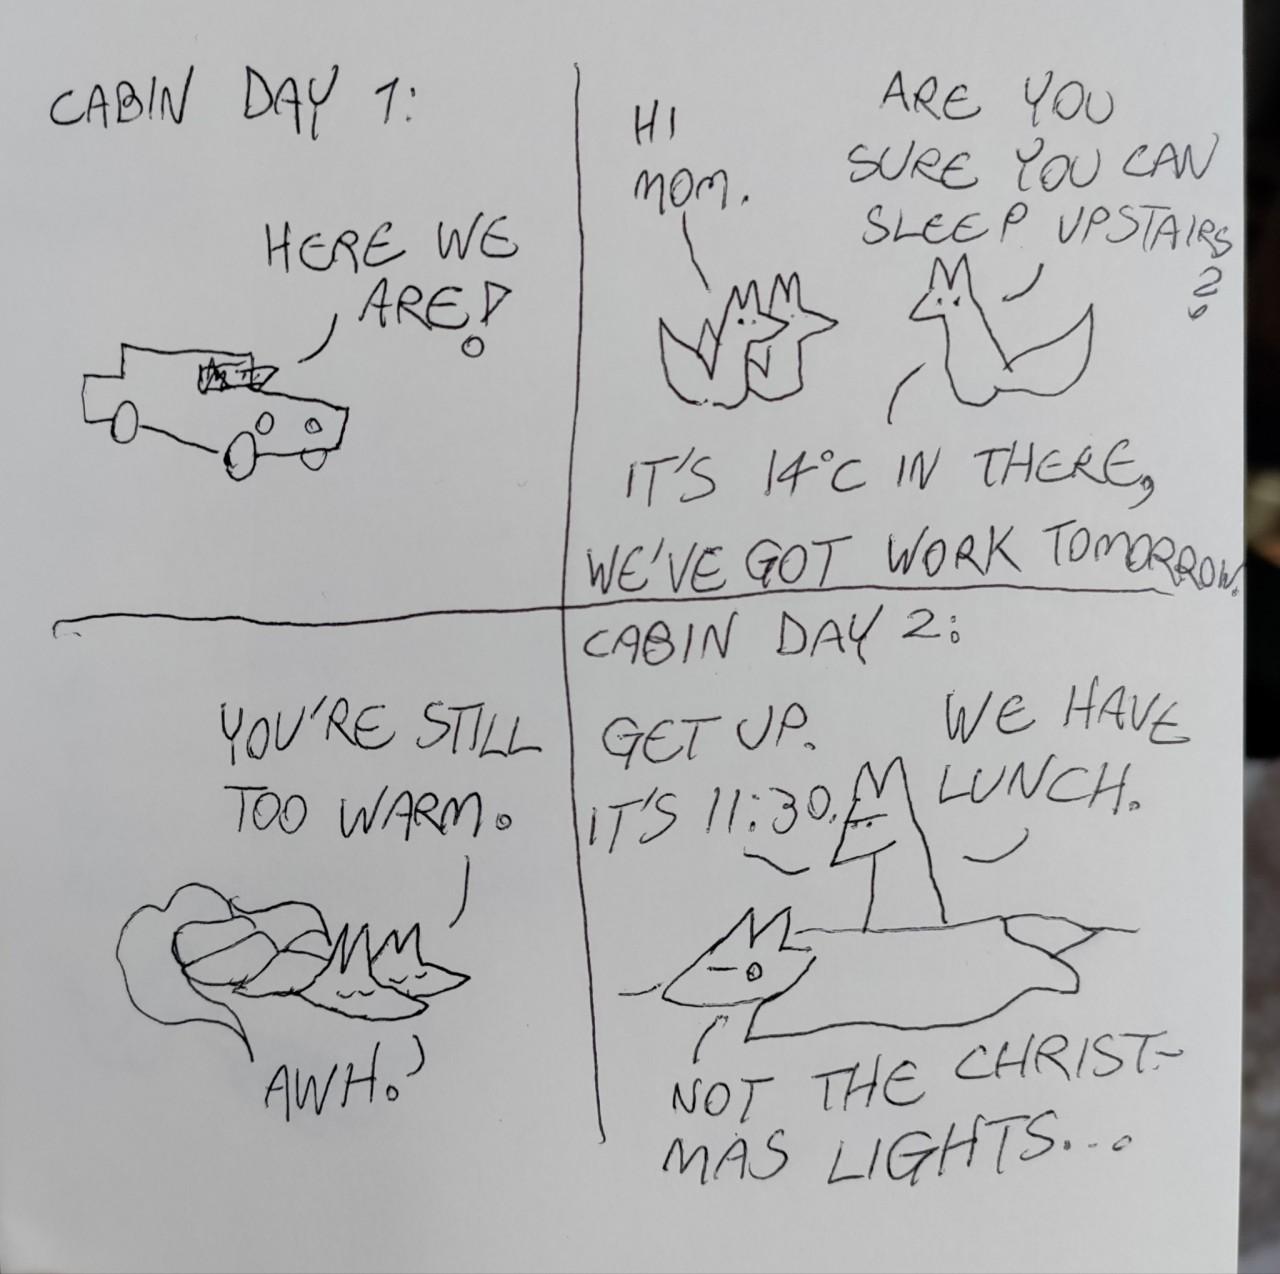 CABIN DAY 1:
HERE WE
ARE!
HI
MOM.
ARE YOU
SURE YOU CAN
SLEEP UPSTAIRS
?
IT'S 14°C IN THERE,
WE'VE GOT WORK TOMORROW.
YOU'RE STILL
TOO WARM.
AWH.
CABIN DAY 2:
GET UP.
IT'S 11:30.
WE HAVE
LUNCH.
NOT THE CHRIST-
MAS LIGHTS...